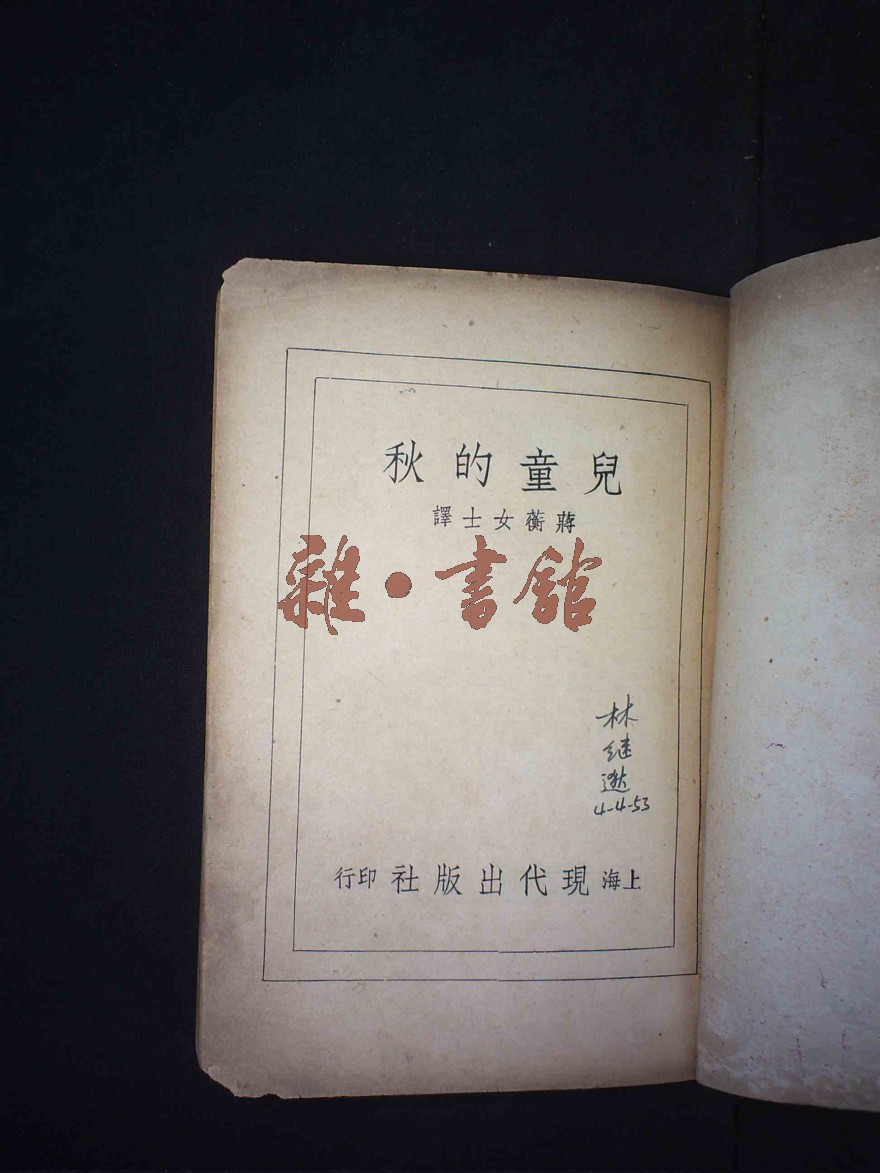 兒童的秋
蔣蘅女士譯
雜·書館
林
继
4-4-53
上海現代出版社印行